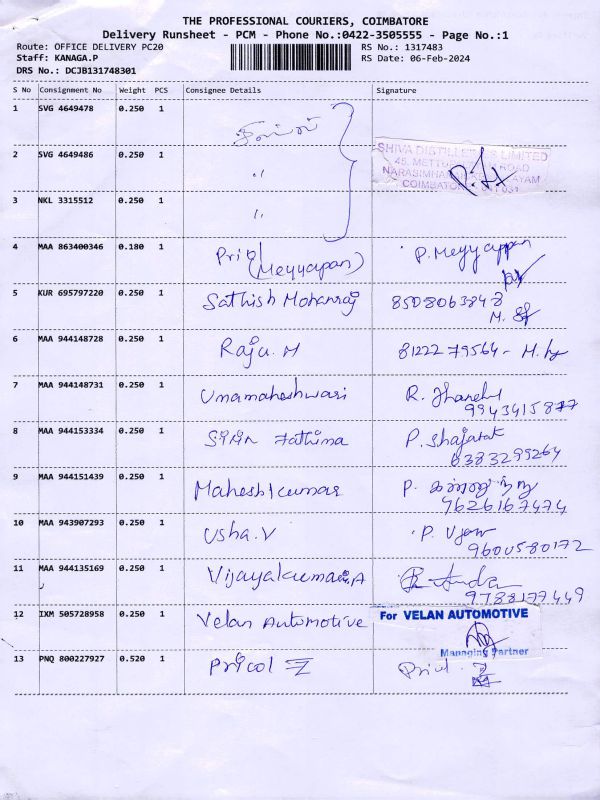 THE PROFESSIONAL COURIERS, COIMBATORE
Delivery Runsheet - PCM - Phone No.:0422-3505555 - Page No.:1
Route: OFFICE DELIVERY PC20 RS No.: 1317483
Staff: KANAGA.P RS Date: 06-Feb-2024
DRS No.: DCJB131748301
S No Consignment No Weight PCS Consignee Details Signature
1 SVG 4649478 0.250 1
2 SVG 4649486 0.250 1 "
SHIVA DISTILLERIES LIMITED
COIMBATORE
3 NKL 3315512 0.250 1 "
4 MAA 863400346 0.180 1 (Meyyapan) P. Meyyappan
5 KUR 695797220 0.250 1 Sathish Mohanraj 8508063848
6 MAA 944148728 0.250 1 Raju. M 81222 79564 - M.
7 MAA 944148731 0.250 1 Umamaheshwari R.
8 MAA 944153334 0.250 1 Fathima P.
6383299264
9 MAA 944151439 0.250 1 Maheshkumar P.
9626167474
10 MAA 943907293 0.250 1 Usha.V P.
9600580172
11 MAA 944135169 0.250 1 Vijayakumar.A
9788177449
12 IXM 505728958 0.250 1 Velan Automotive For VELAN AUTOMOTIVE
Managing Partner
13 PNQ 800227927 0.520 1 Pricol